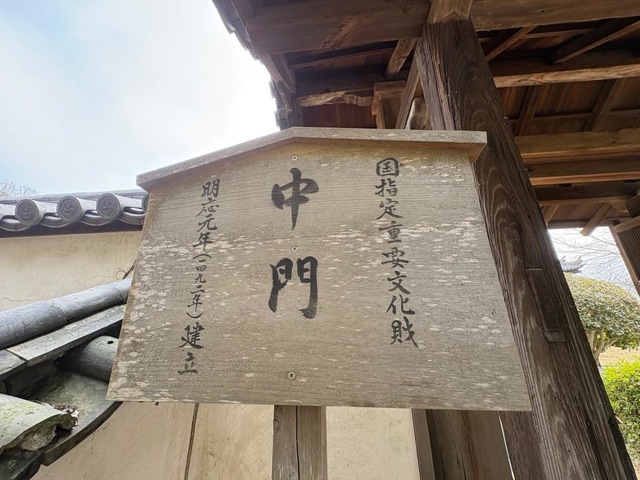 国指定重要文化財
中門
明応元年（一四九二年）建立